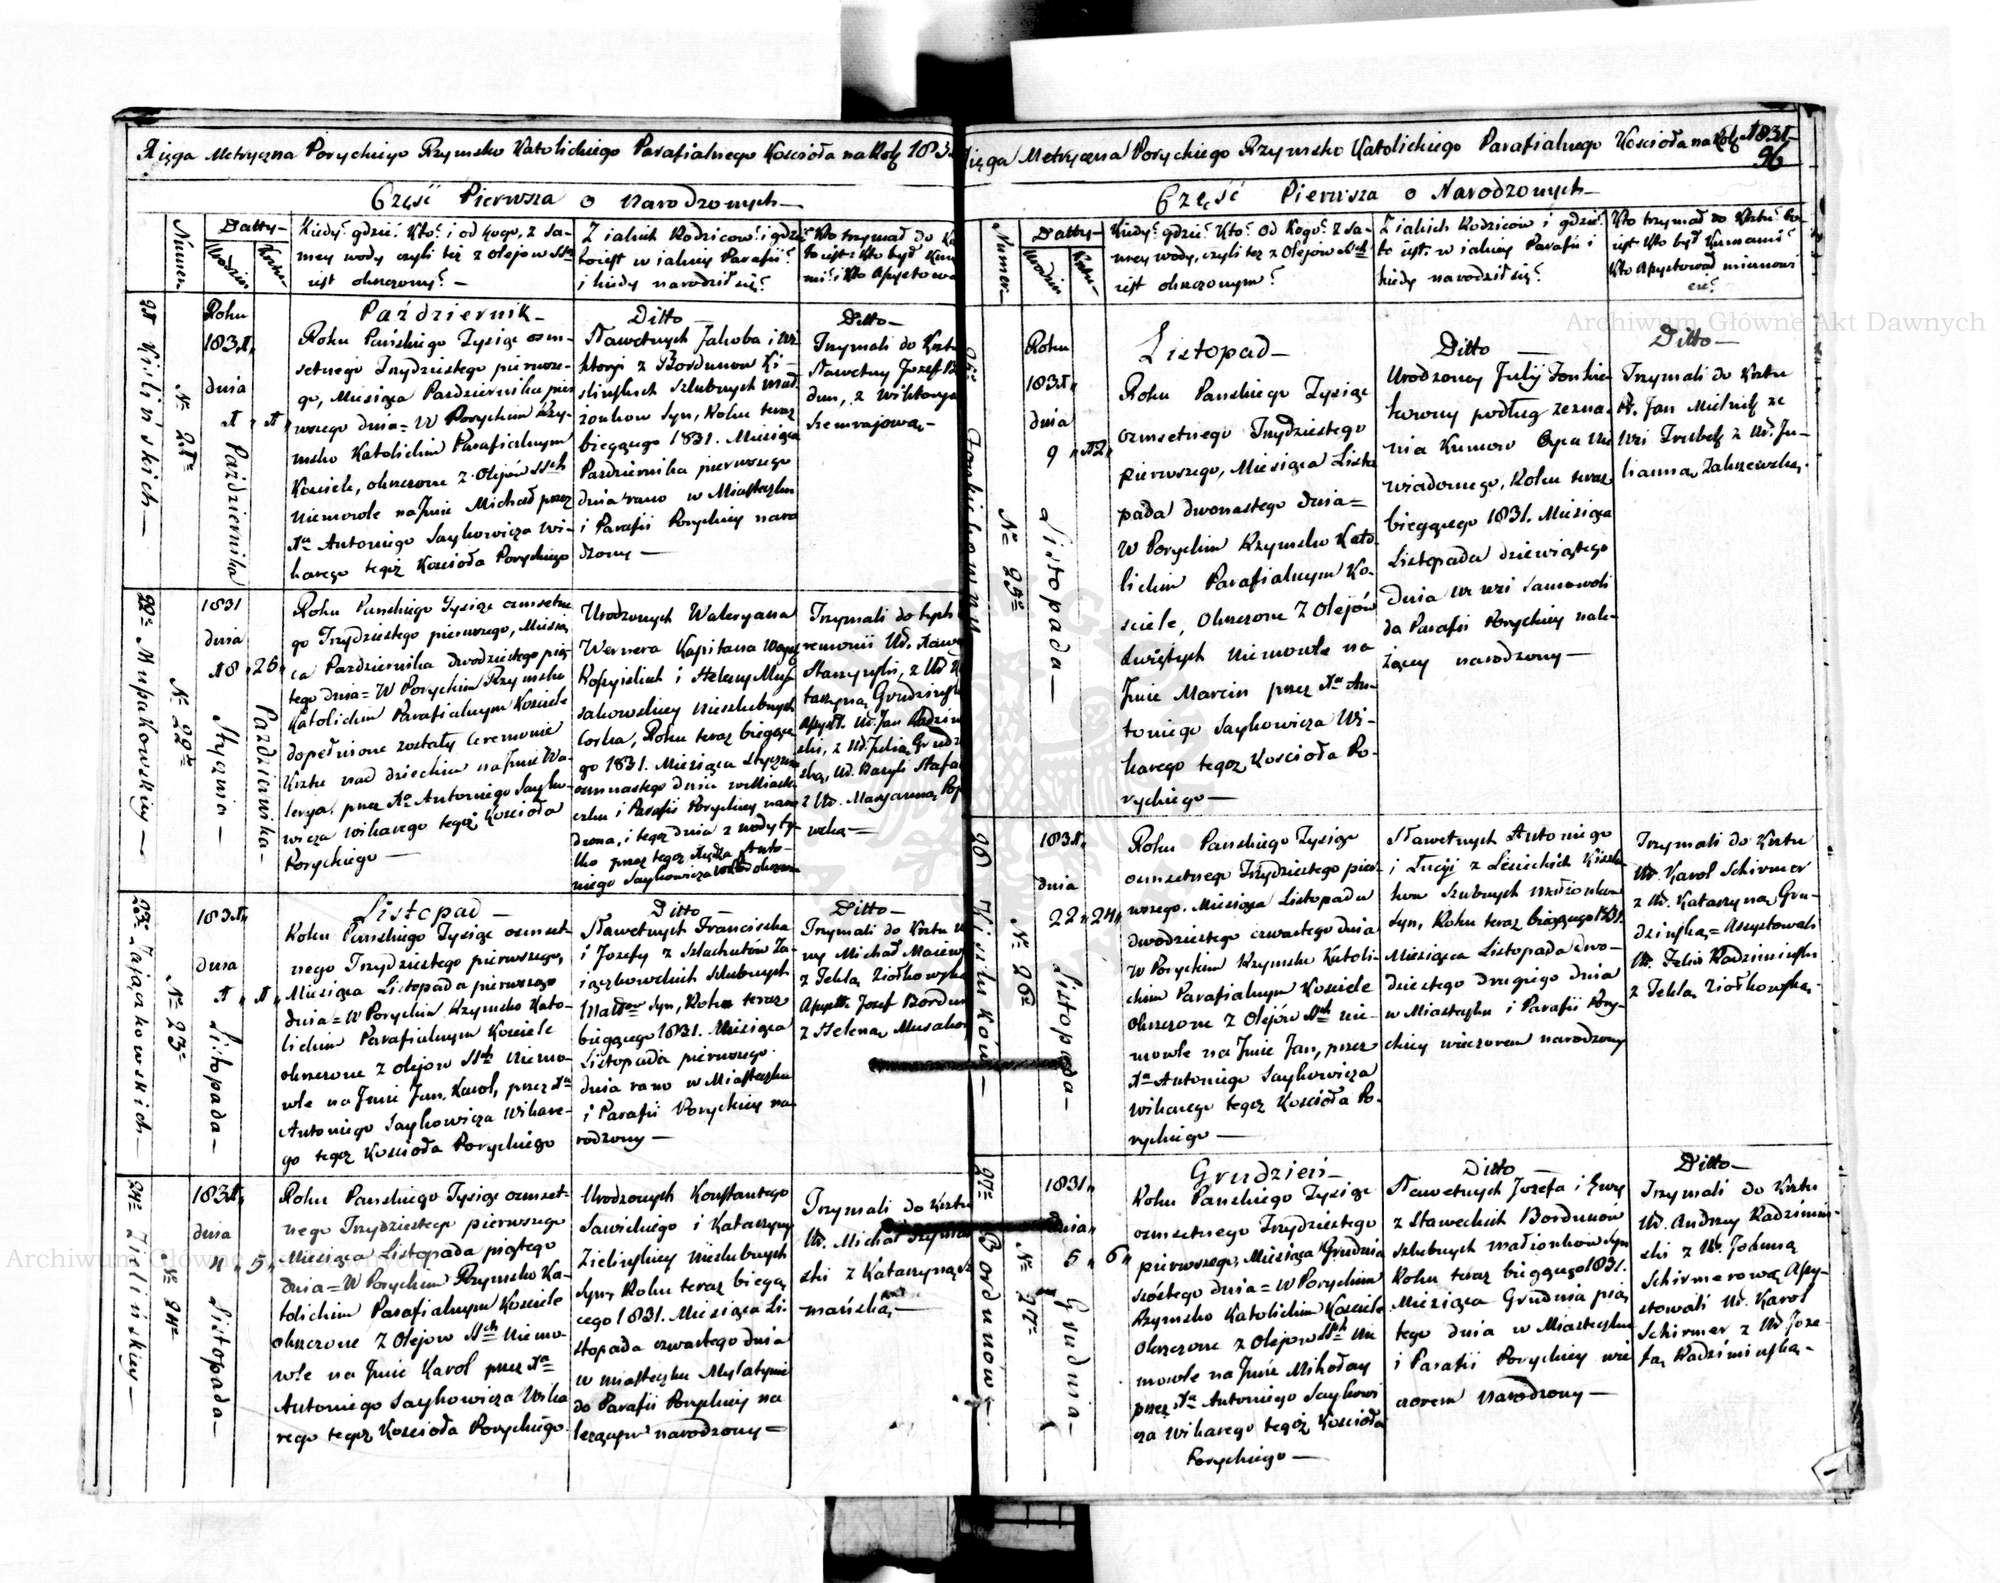 Xięga Metryczna Poryckiego Rzymsko Katolickiego Parafialnego Kościoła na Rok 183
Część Pierwsza o Narodzonych—
Numer
Datty—
Urodzin
Krztu—
Kiedy? gdzie? Kto? i od kogo, z sa-
mey wody czyli też z olejów SSch
iest okrzczony? —
Z iakich Rodziców? i gdzie
to iest w iakiey Parafii?
i kiedy narodził się?
Kto trzymał do K
to iest: kto był Kum
mi? i kto Assystowa
21 Kiślińskich—
No 21o
Roku
1831,,
dnia
1 ,, 1 ,,
Października
Październik—
Roku Pańskiego Tysiąc osm-
setnego Trzydziestego pierwsze-
go, Miesiąca Października pier
wszego dnia = W Poryckim Rzy-
msko Katolickim Parafialnym
Kościele, okrzczone z Olejów SSch
Niemowle na Jmie Michał przez
Xa Antoniego Saykowicza Wi-
karego tegoż Kościoła Poryckiego
Ditto—
Sławetnych Jakoba i Wi
ktoryi z Bordunow Ki-
slińskich szlubnych mał
żonkow Syn, Roku teraz
bieggcego 1831. Miesiąca
Października pierwszego
dnia rano w Miasteczku
i Parafii Poryckiey naro
dzony —
Ditto—
Trzymali do Krztu
Sławetny Jozef B
dun, z Wiktorya
Szemrajową—
22o Musakowskiey —
No 22o
1831
dnia
18 ,, 25 ,,
Stycznia —
Października—
Roku Panskiego Tysiąc osmsetne
go Trzydziestego pierwszego, Miesią
ca Października dwudziestego pią
tego dnia = W Poryckim Rzymsko
Katolickim Parafialnym Kościele
dopełnione zostały Ceremonie
Krztu nad dzieckiem na Jmie Wa-
lerya. przez Xa Antoniego Sayko-
wicza Wikarego tegoż Kościoła
Poryckiego —
Urodzonych Waleryana
Wernera Kapitana Woysk
Rossyiskich i Heleny Mu-
sakowskiey Nieszlubnych
Corka, Roku teraz bieggce
go 1831. Miesiąca Stycznia
osmnastego dnia w Miaste-
czku i Parafii Poryckiey naro
dzona, i tegoż dnia z wody ty-
lko przez tegoż Xiędza Anto-
niego Saykowicza
Trzymali do tych
remonii Ur.
Starzynski, z Ur
tarzyną Grudzinsk
Assyst. Ur. Jan Radzim
ski, z Ur. Julią Grudz
ską, Ur. Bazyli Stefa
z Ur. Maryanną Po
wską —
23o Zajączkowskich—
No 23o
1831,,
dnia
1 ,, 1 ,,
Listopada—
Listopad—
Roku Panskiego Tysiąc osmset-
nego Trzydziestego pierwszego,
Miesiąca Listopada pierwszego
dnia = W Poryckim Rzymsko Kato-
lickim Parafialnym Kościele
okrzczone z olejow SSch Niemo-
wle na Jmie Jan, Karol, przez Xa
Antoniego Saykowicza Wikare-
go tegoż Kościoła Poryckiego
Ditto—
Sławetnych Franciszka
i Jozefy z Szlachutow Za-
iączkowskich szlubnych
Małżow Syn, Roku teraz
bieggcego 1831. Miesiąca
Listopada pierwszego
dnia rano w Miasteczku
i Parafii Poryckiey na
rodzony —
Ditto—
Trzymali do Krztu
ny Michał Maiew
z Teklą Ziołkowską
Assystt. Jozef Bordun
z Heleną Musako
24o Zielińskiey —
No 24o
1831,,
dnia
4 ,, 5 ,,
Listopada—
Roku Panskiego Tysiąc osmset-
nego Trzydziestego pierwszego
Miesiąca Listopada piątego
dnia = W Poryckim Rzymsko Ka-
tolickim Parafialnym Kościele
okrzczone z Olejow SSch Niemo-
wle na Jmie Karol przez Xa
Antoniego Saykowicza Wika
rego tegoż Kościoła Poryckiego
Urodzonych Konstantego
Sawickiego i Katarzyny
Zielinskiey nieszlubnych
Syn, Roku teraz biegg
cego 1831. Miesiąca Li-
stopada czwartego dnia
w miasteczku Mylatynie
do Parafii Poryckiey na
leżącym narodzony =
Trzymali do Krztu
Ur. Michał Szyma
ski z Katarzyną
mańską —
Xięga Metryczna Poryckiego Rzymsko Katolickiego Parafialnego Kościoła na Rok 1831
96
Część Pierwsza o Narodzonych—
Numer—
Datty—
Urodzin
Krztu—
Kiedy? gdzie? Kto? Od Kogo? z sa-
mey wody, czyli też z Olejów SSch
iest okrzczonym?
Z iakich Rodzicow i gdzie?
to iest: w iakiey Parafii i
kiedy narodził się?
Kto trzymał do Krztu? to
iest Kto był Kumami?
Kto Assystował mianowi
cie?
No 25o
Roku
1831,,
dnia
9 ,, 12,,
Listopada—
Listopad—
Roku Panskiego Tysiąc
ozmsetnego Trzydziestego
pierwszego, Miesiąca Listo
pada dwonastego dnia =
W Poryckim Rzymsko Kato-
lickim Parafialnym Ko-
sciele, Okrzczone z Olejów
Swiętych Niemowle na
Jmie Marcin przez Xa An-
toniego Saykowicza Wi-
karego tegoż Kościoła Po-
ryckiego —
Ditto—
Urodzoney Julij
podług zezna-
nia Kumow Oyca Nie
wiadomego, Roku teraz
bieggcego 1831. Miesiąca
Listopada dziewiątego
dnia w wsi Samowoli
do Parafii Poryckiey nale-
żącey narodzony —
Ditto—
Trzymali do Krztu
Ur. Jan Mielnik ze
Wsi Trubek z Ur. Ju-
lianną Zakrzewską.
26 Kiszkuków—
No 26o
1831,,
dnia
22 ,, 24,,
Listopada—
Roku Panskiego Tysiąc
ozmsetnego Trzydziestego pier-
wszego. Miesiąca Listopada
dwudziestego czwartego dnia
W Poryckim Rzymsko Katoli-
ckim Parafialnym Kościele
okrzczone z Olejów SSch nie-
mowle na Jmie Jan, przez
Xa Antoniego Saykowicza
Wikarego tegoż Kościoła Po-
ryckiego —
Sławetnych Antoniego
i Łucyi z
Szlubnych małżonkow
Syn, Roku teraz bieggcego 1831.
Miesiąca Listopada dwo-
dziestego drugiego dnia
w Miasteczku i Parafii Pory-
ckiey wieczorem narodzony
Trzymali do Krztu
Ur. Karol Schirmer
z Ur. Katarzyną Gru-
dzinską = Assystowali
Ur. Felix Radziminski
z Teklą Ziołkowską.
27o Bordunów—
No 27o
1831,,
dnia
5 ,, 6 ,,
Grudnia—
Grudzień—
Roku Panskiego Tysiąc
ozmsetnego Trzydziestego
pierwszego, Miesiąca Grudnia
szóstego dnia = W Poryckim
Rzymsko Katolickim Kościele
Okrzczone z Olejow SSch Nie
mowle na Jmie Mikołay
przez Xa Antoniego Saykowi
cza Wikarego tegoż Kościoła
Poryckiego —
Ditto—
Sławetnych Jozefa i Ewy
z Staweckich Bordunow
szlubnych małżonkow Syn
Roku teraz bieggcego 1831.
Miesiąca Grudnia pią
tego dnia w Miasteczku
i Parafii Poryckiey wie
czorem narodzony —
Ditto—
Trzymali do Krztu
Ur. Andrzey Radzimin-
ski z Ur. Joanną
Schirmerową, Assy-
stowali Ur. Karol
Schirmer z Ur. Joze-
fą Radzimińską.
Archiwum Główne Akt Dawnych